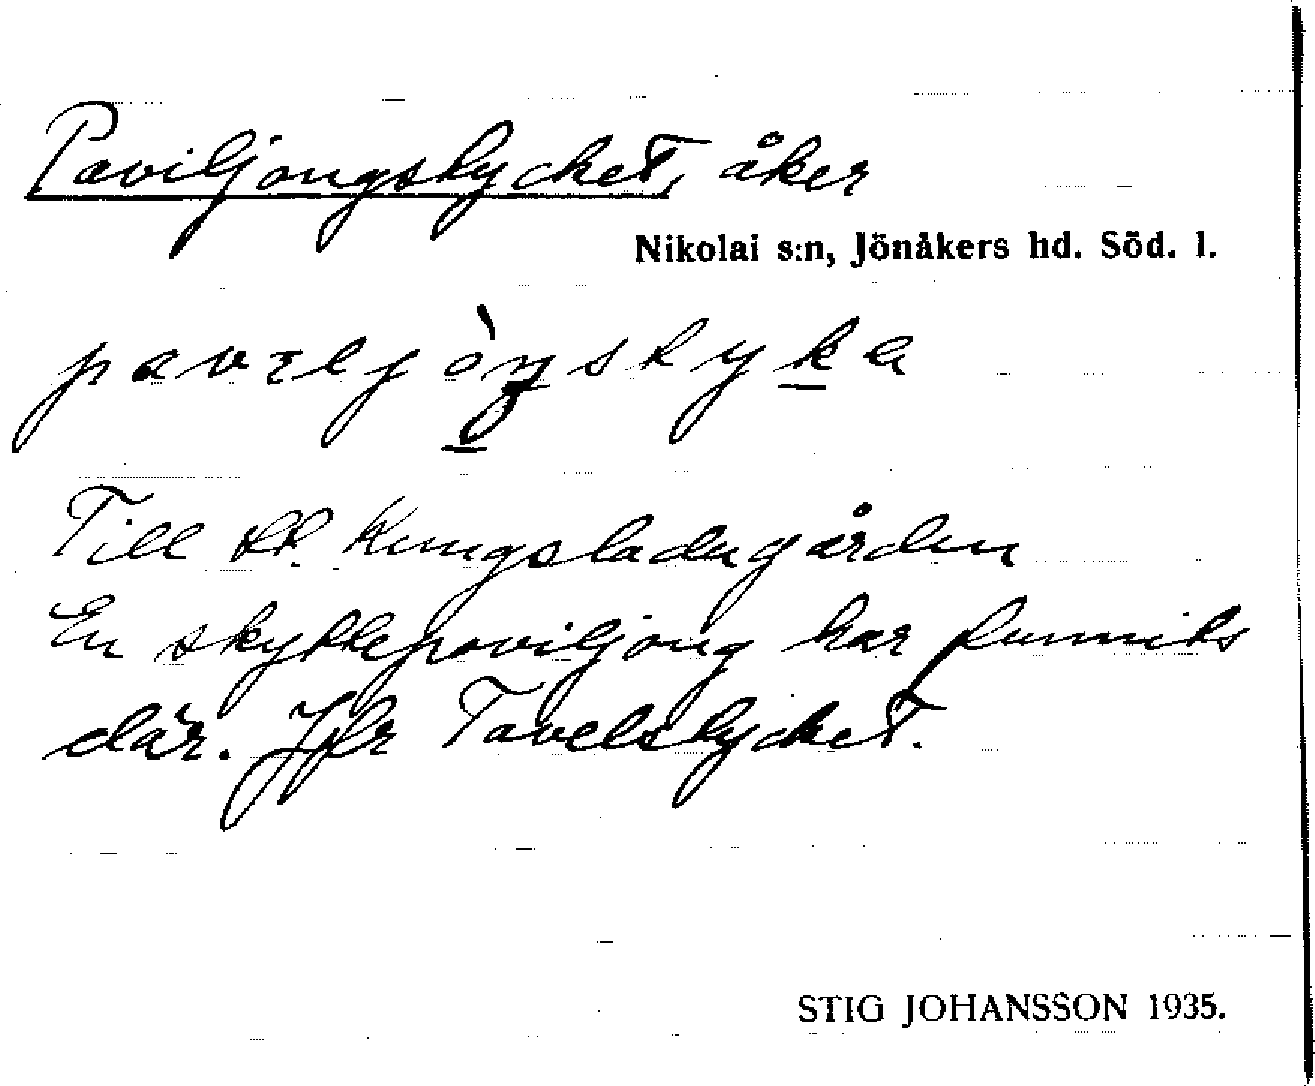 Paviljongslycket, åker
Nikolai s:n, Jönåkers hd. Söd. l.
Till Kungsladugården
En skyttepaviljong har funnits
där. Jfr Tavelslycket.
STIG JOHANSSON 1935.